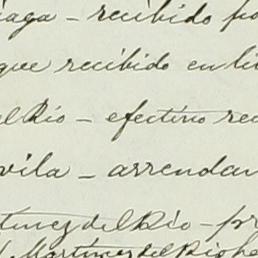 iaga - recibido po
que recibido en li
el Rio - efectivo rec
vila - arrendan
tinez del Rio - pr
Martinez del Rio he